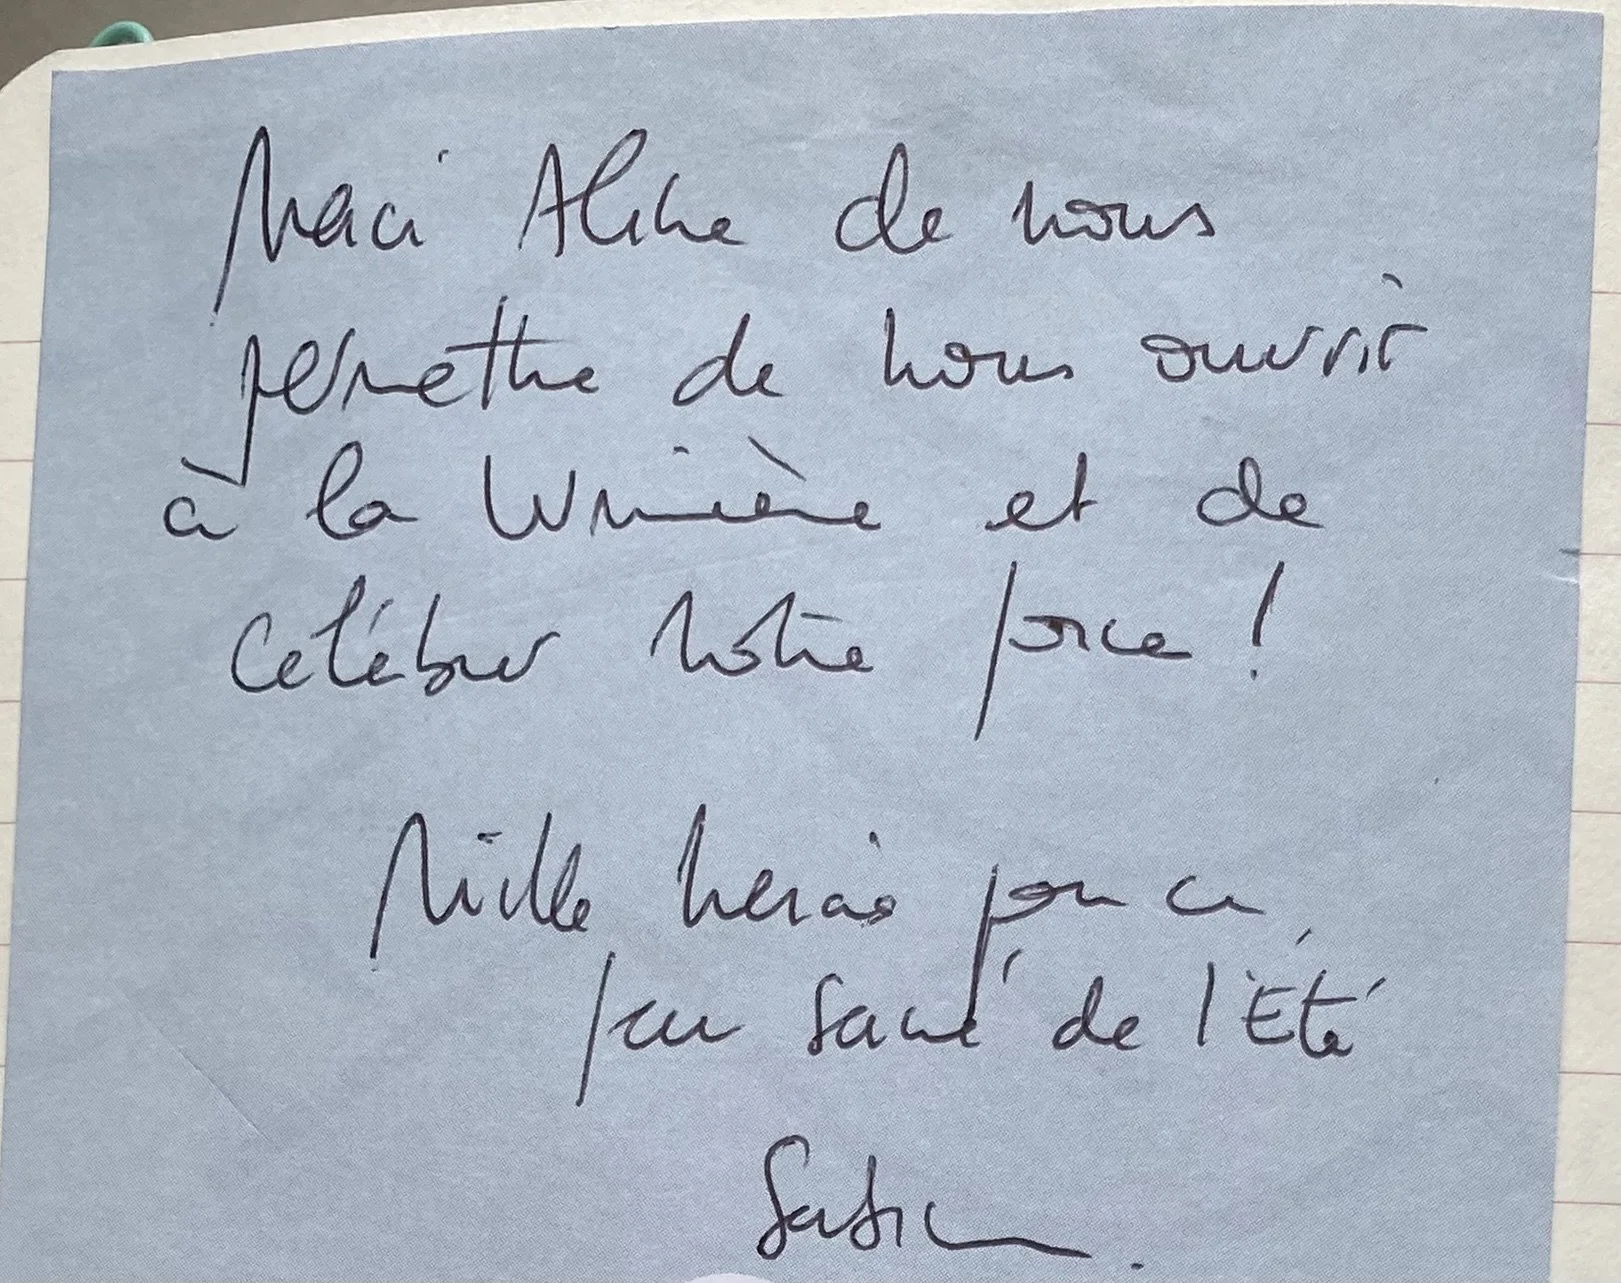 Merci Aline de nous
permettre de nous ouvrir
à la lumière et de
célébrer notre force !
Mille mercis pour ce
feu sacré de l'Eté
Sabine